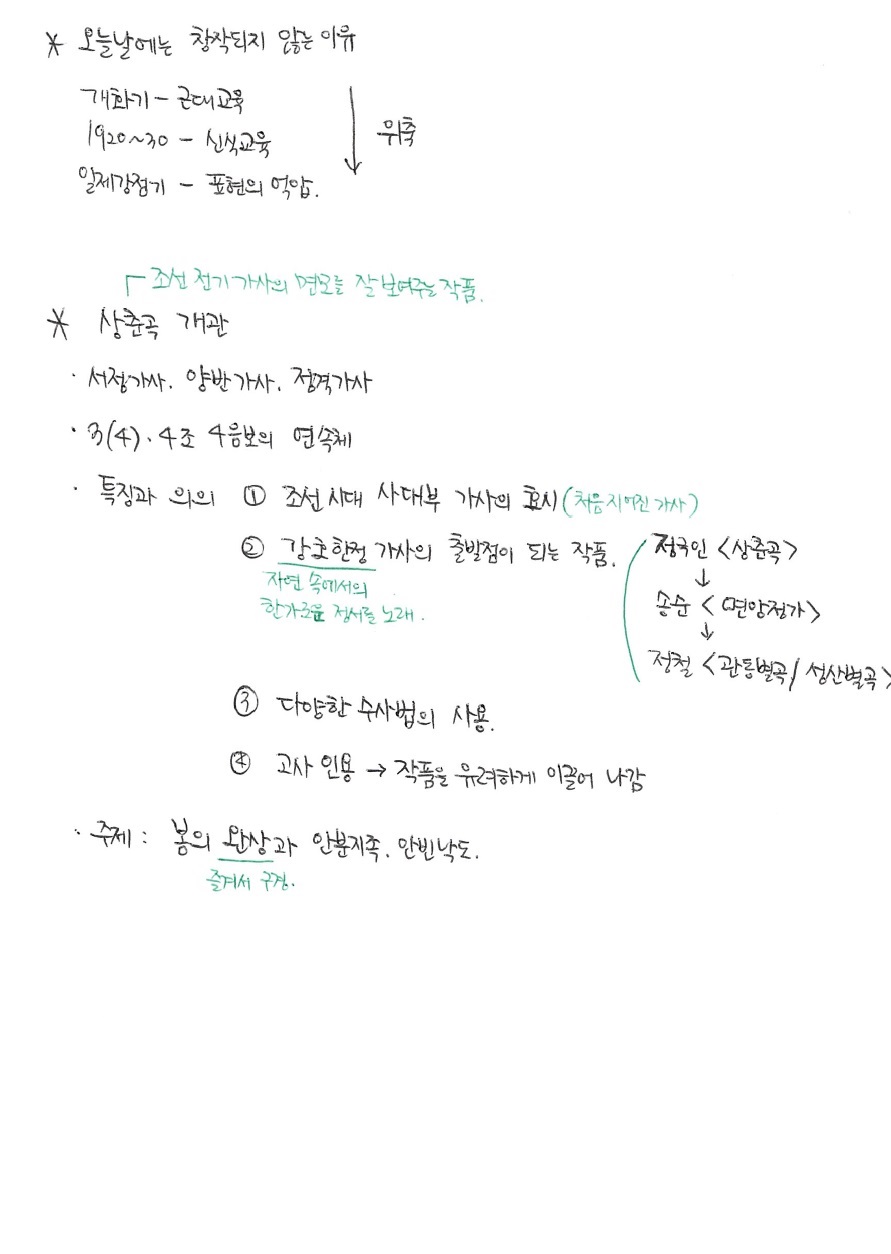 * 오늘날에는 창작되지 않는 이유
개화기 - 근대교육
1920~30 - 신식교육
일제강점기 - 표현의 억압.
↓ 위축
┌ 조선 전기 가사의 면모를 잘 보여주는 작품.
* 상춘곡 개관
· 서정가사. 양반가사. 정격가사
· 3(4)·4조 4음보의 연속체
· 특징과 의의 ① 조선시대 사대부 가사의 효시 (처음 지어진 가사)
② 강호한정 가사의 출발점이 되는 작품.
자연 속에서의
한가로운 정서를 노래.
정극인 <상춘곡>
↓
송순 <면앙정가>
↓
정철 <관동별곡/ 성산별곡>
③ 다양한 수사법의 사용.
④ 고사 인용 → 작품을 유려하게 이끌어 나감
· 주제 : 봄의 완상과 안분지족. 안빈낙도.
즐겨서 구경.